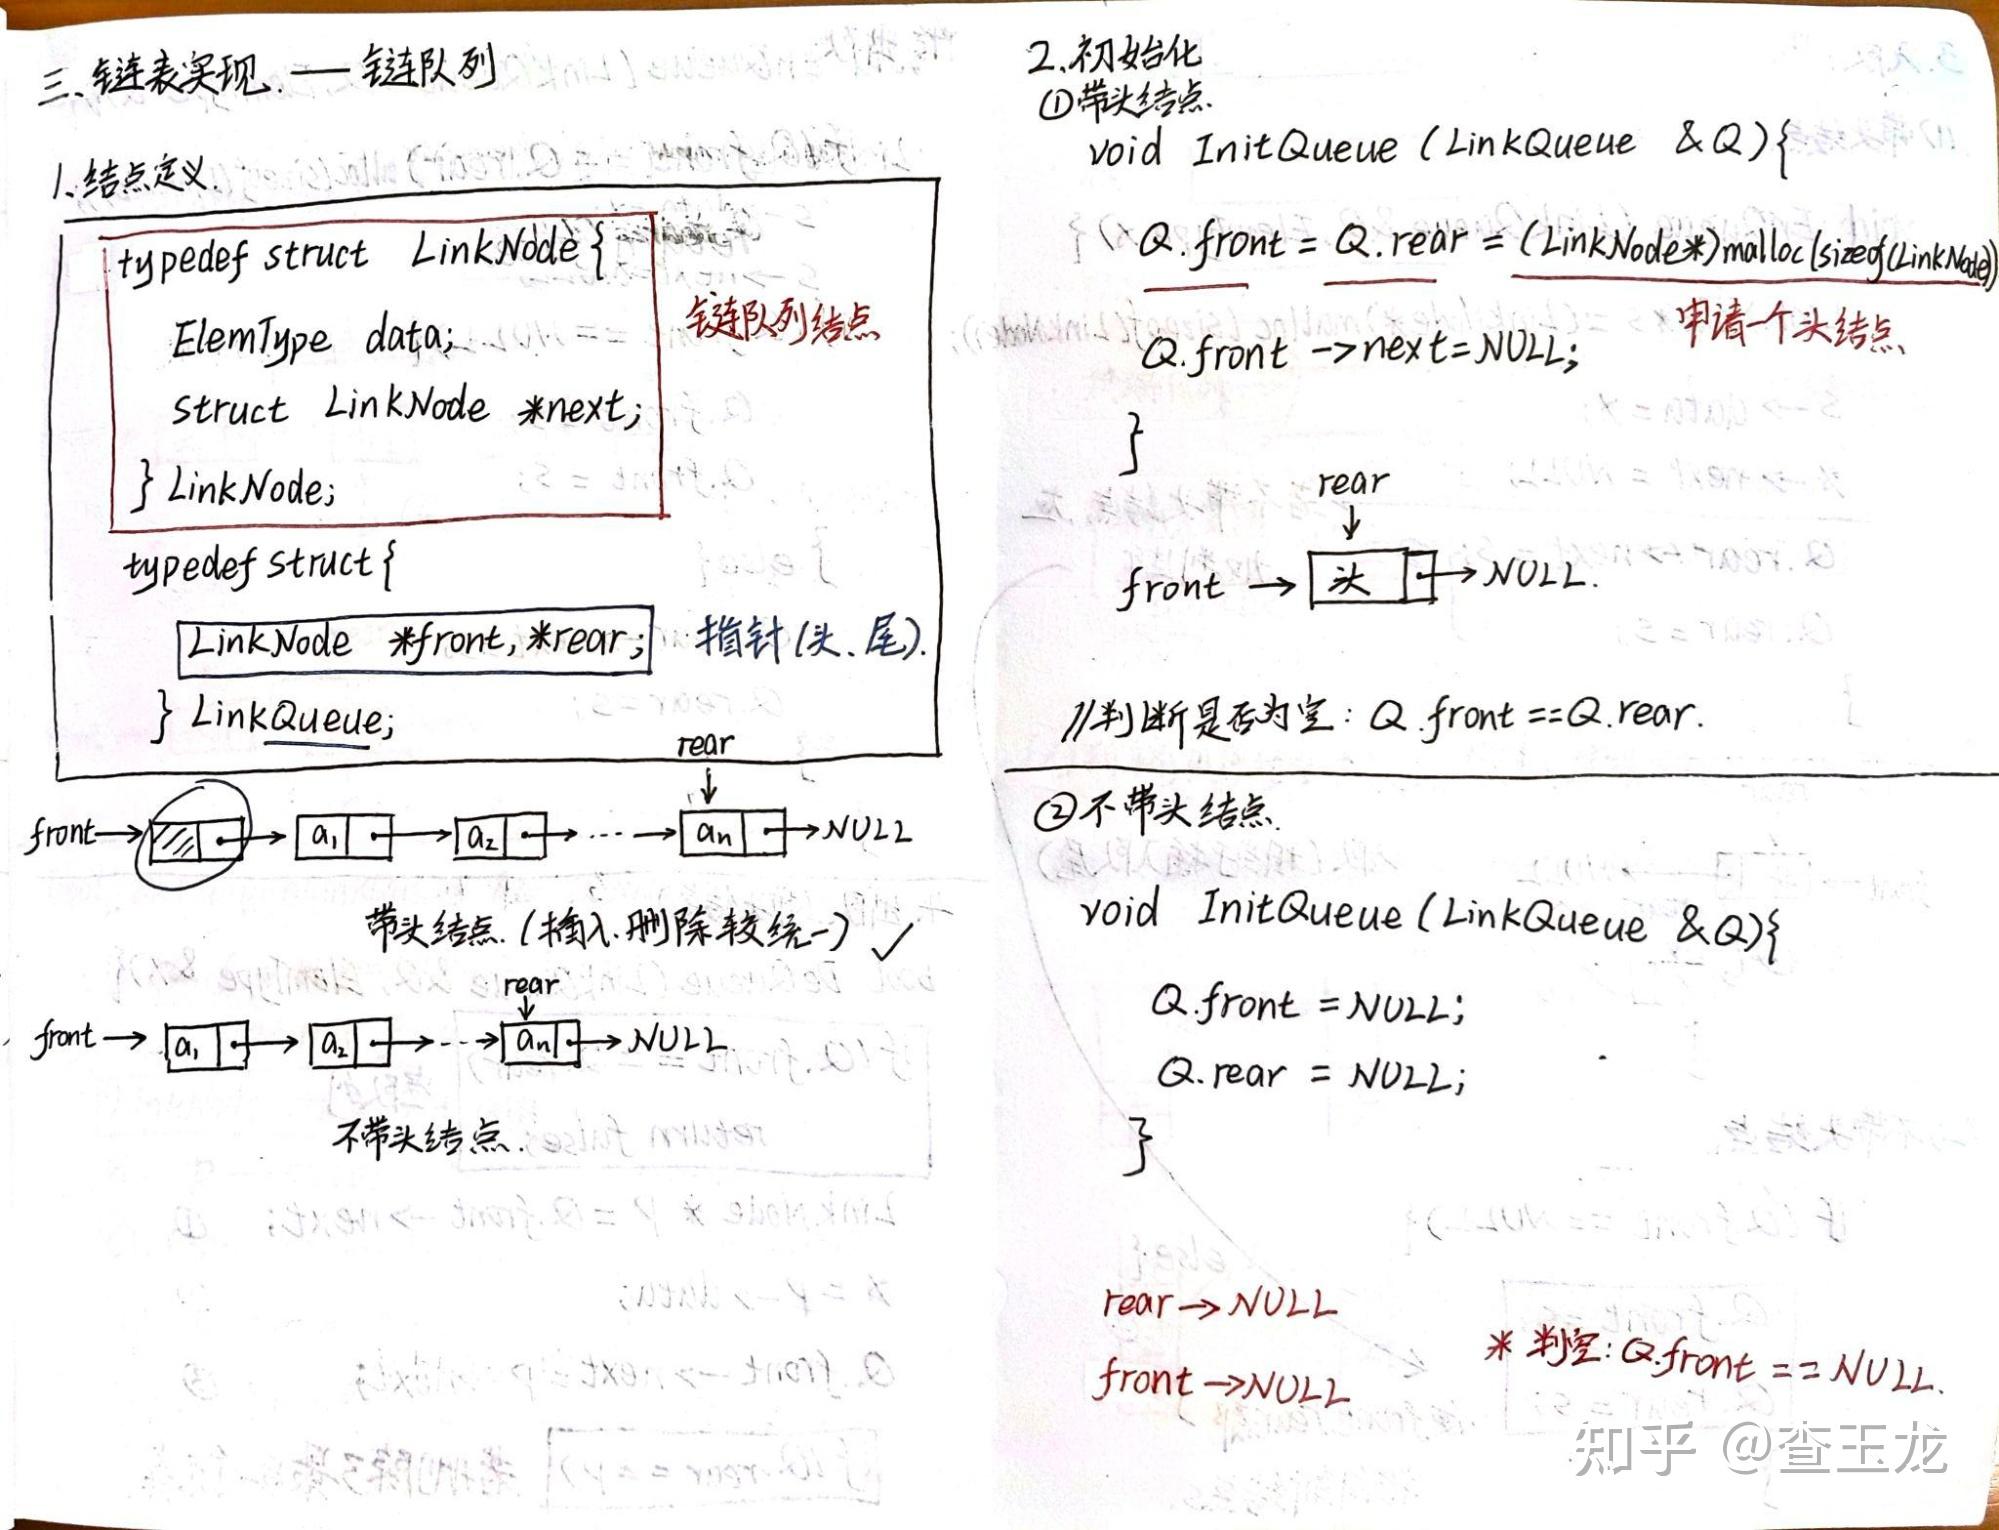 三、链表实现. —— 链队列
1、结点定义.
typedef struct LinkNode{
ElemType data;
struct LinkNode *next;
} LinkNode;
链队列结点
typedef struct{
LinkNode *front, *rear;
指针(头、尾).
} LinkQueue;
rear
front→ a₁ a₂ ··· → an →NULL
带头结点.(插入.删除较统一) ✓
rear
front→ a₁ → a₂ →···→ an →NULL
不带头结点.
2、初始化
①带头结点.
void InitQueue (LinkQueue &Q){
Q.front = Q.rear = (LinkNode*)malloc(sizeof(LinkNode))
申请一个头结点
Q.front ->next=NULL;
}
rear
front → 头 →NULL.
//判断是否为空: Q.front==Q.rear.
②不带头结点.
void InitQueue (LinkQueue &Q){
Q.front =NULL;
Q.rear = NULL;
}
rear→NULL
front→NULL
* 判空: Q.front ==NULL.
知乎 @查玉龙